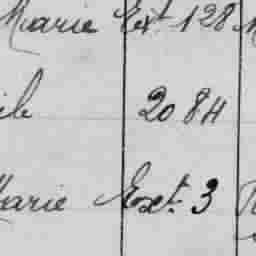 Marie Ext. 128
20 84
Marie Ext. 3